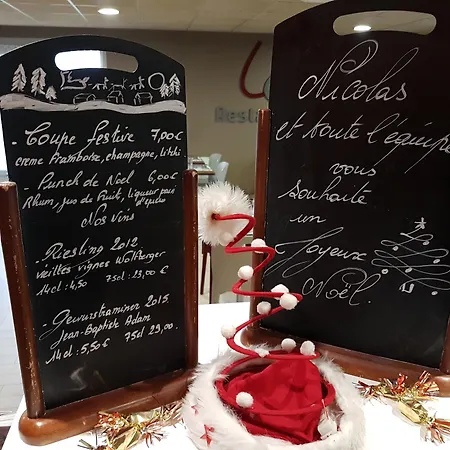 - Coupe festive 7,00€
creme Framboise, champagne, Litchi
- Punch de Noël 6,00€
Rhum, jus de Fruit, liqueur pain d'épices
Nos Vins
- Riesling 2012
vieilles vignes Wolfberger
14cl: 4,50 75cl: 23,00€
- Gewurstraminer 2015
Jean-Baptiste Adam
14cl: 5,50€ 75cl 29,00€
Nicolas
et toute l'équipe
vous
souhaite
un
Joyeux
Noël.
Resta